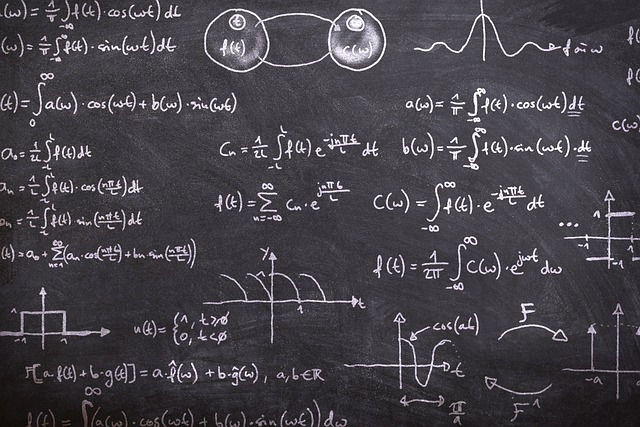 a(ω) = 1/π ∫f(t)·cos(ωt) dt
(ω) = 1/π ∫f(t)·sin(ωt) dt
t f(t) t c(ω)
f or ω
(t) = ∫₀^∞ a(ω)·cos(ωt) + b(ω)·sin(ωt)
a(ω) = 1/π ∫_{-∞}^{∞} f(t)·cos(ωt) dt
c(ω)
a₀ = 1/2L ∫_{-L}^{L} f(t) dt
Cn = 1/2L ∫_{-L}^{L} f(t) e^{-jnπt/L} dt
b(ω) = 1/π ∫_{-∞}^{∞} f(t)·sin(ωt)·dt
an = 1/L ∫_{-L}^{L} f(t)·cos(nπt/L) dt
f(t) = ∑_{n=-∞}^{∞} Cn·e^{jnπt/L}
C(ω) = ∫_{-∞}^{∞} f(t)·e^{-jnπt/L} dt
bn = 1/L ∫_{-L}^{L} f(t)·sin(nπt/L) dt
(t) = a₀ + ∑_{n=1}^{∞} (an·cos(nπt/L) + bn·sin(nπt/L))
f(t) = 1/2π ∫_{-∞}^{∞} C(ω)·e^{jωt} dω
... 1 -1
y 1 1 t
-1 1
u(t) = {1, t≥0
0, t<0
cos(at) t
F
F⁻¹
-a
F[a·f(t) + b·g(t)] = a·f̂(ω) + b·ĝ(ω), a, b ∈ ℝ
π/a
f(t) = ∫^∞ (a(ω)·cos(ωt) + b(ω)·sin(ωt)) dω